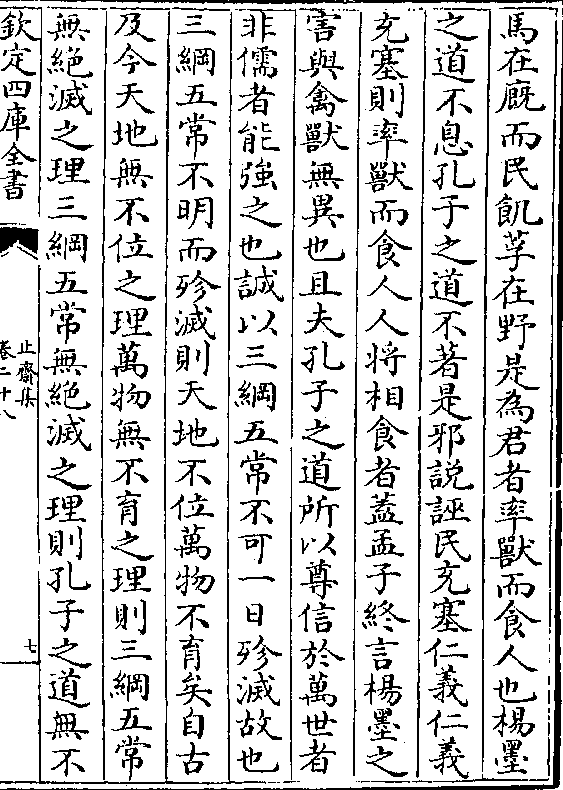 馬在廐而民飢莩在野是為君者率獸而食人也楊墨
之道不息孔子之道不著是邪說誣民充塞仁義仁義
充塞則率獸而食人人将相食者蓋孟子終言楊墨之
害與禽獸無異也且夫孔子之道所以尊信於萬世者
非儒者能強之也誠以三綱五常不可一日殄滅故也
三綱五常不明而殄滅則天地不位萬物不育矣自古
及今天地無不位之理萬物無不育之理則三綱五常
無絕滅之理三綱五常無絕滅之理則孔子之道無不
欽定四庫全書
止齋集
卷二十八
七